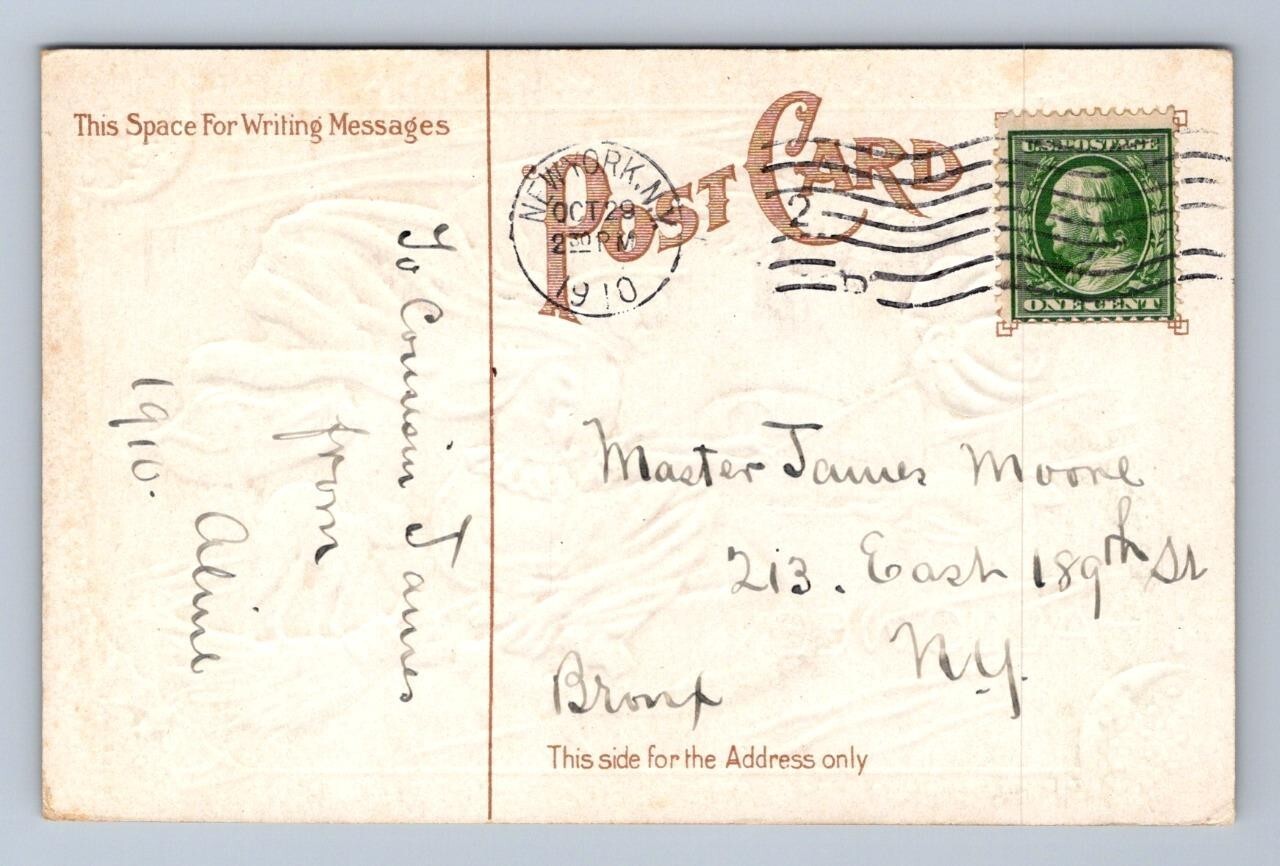 This Space For Writing Messages
To Cousin James
from
Aline
1910.
POST CARD
NEW YORK, N.Y.
OCT 29
2 30 PM
1910
2
D
U.S. POSTAGE
ONE CENT
Master James Moore
213. East 189th St
N.Y.
Bronx
This side for the Address only